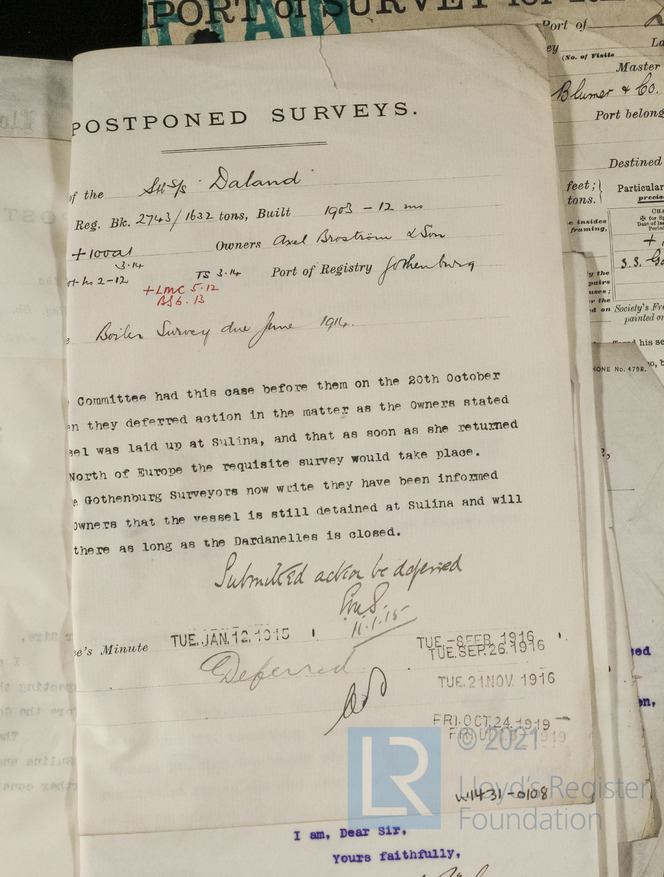 PORT of SURVEY for
Port of
(No. of Visits
Master
Blumer & Co.
Port belong
Destined
feet;
tons.
Particular
POSTPONED SURVEYS.
of the S.S. "Daland"
Reg. Bk. 2743/1632 tons, Built 1903 - 12 mo
+100A1 Owners Axel Broström & Son
3.14
2-12 TS 3.14 Port of Registry Gothenburg
+LMC 5.12
BS 6.13
Boiler Survey due June 1914.
Committee had this case before them on the 20th October
n they deferred action in the matter as the Owners stated
sel was laid up at Sulina, and that as soon as she returned
North of Europe the requisite survey would take place.
e Gothenburg Surveyors now write they have been informed
Owners that the vessel is still detained at Sulina and will
there as long as the Dardanelles is closed.
Submitted action be deferred
11.1.15
ee's Minute TUE. JAN. 12. 1915
TUE.-8 FEB. 1916
TUE. SEP. 26. 1916
Deferred
TUE. 21 NOV. 1916
FRI. OCT. 24. 1919
LR
© 2021
Lloyd's Register
Foundation
W1431-0108
I am, Dear Sir,
Yours faithfully,